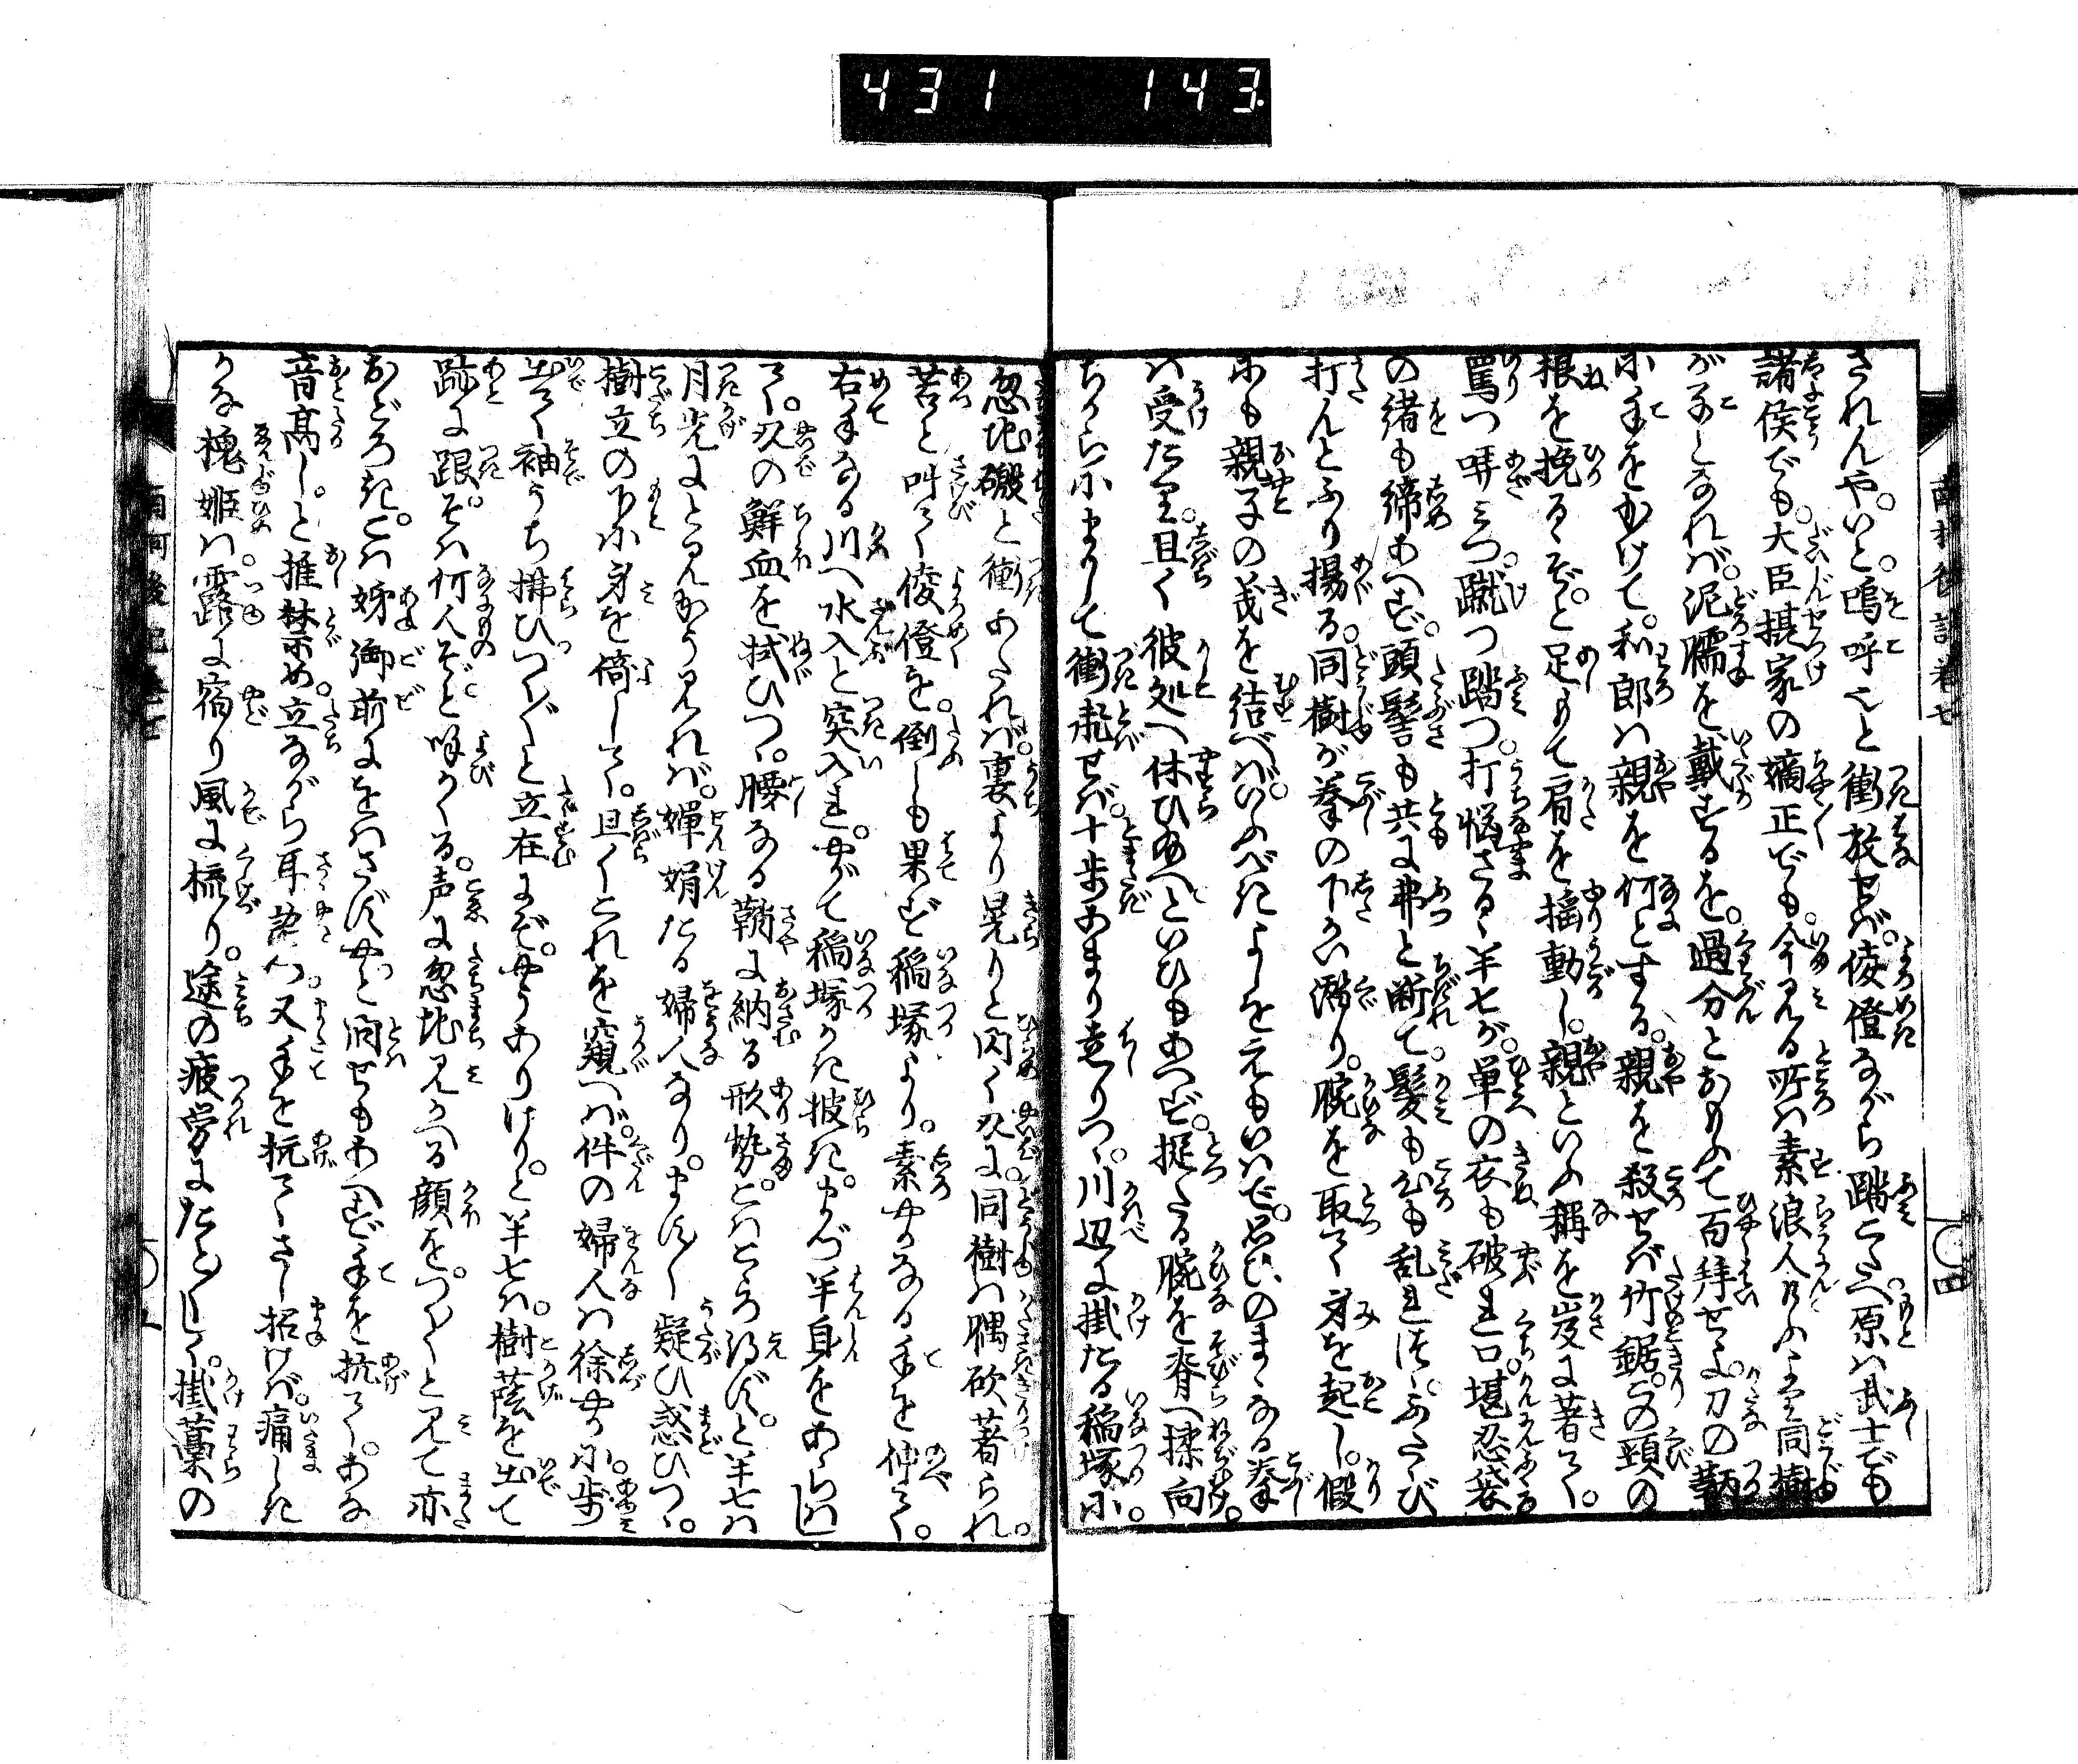 431 143
南柯後記巻七
されんや。いと。嗚呼々と衝放せば。倰僜ながら踏こたへ。原は武士でも
諸侯でも。大臣摂家の嫡正でも。今見る所は素浪人。乃ふ
が子となれば。泥臑を戴するを。過分とおもふて百拝せよ。刀の鞆
に手をかけて。和郎は親を何とする。親を殺せば竹鋸。その頸の
根を挽るゝぞ。と足もて肩を揺動し。親といふ稱を岌に著て。
罵つ哢みつ。蹴つ踏つ。打悩さるゝ半七が。単の衣も破れ口。堪忍袋
の緒も締あへず。頭髻も共に弗と断て。髪も心も乱れつゝ。ふたゝび
打んとふり揚る。同樹が拳の下かい潜り。腕を取て身を起し。假
にも親子の義を結べば。いふべきよしを元もいはで。思ひのまゝなる拳
は受たり。且く彼処へ休ひ給へといひもあへず。捉たる腕を脊へ揉向。
ちからにまかして衝飛せば。十歩あまり走りつゝ。川辺に掛たる稲塚に。
忽地磯と衝あたれば。裏より晃りと閃く刃に。同樹は腢砍著られ。
苦と叫て倰僜を。倒しも果ず稲塚より。素やかなる手を伸て。
右手なる川へ水入と突入れ。やがて稲塚かき披き。まづ半身をあらはし
て。刃の鮮血を拭ひつゝ。腰なる鞘に納る形勢。とはとろ得ず。と半七は
月光によとみかうみれば。嬋娟たる婦人なり。ます〳〵疑ひ惑ひつゝ。
樹立の下に身を倚して。且くこれを窺へば。件の婦人は徐やかに。歩
出て袖うち拂ひつゝ。〳〵と立在にぞ。やうありけり。と半七は。樹蔭を出て
跡に跟。そは何人ぞと呼かくる。声に忽地見かへる顔を。つく〴〵と見て亦
おどろき。こは姉御前にをはさずや。と問せもあへず手を抗て。あな
音高し。と推禁め。立ながら耳語つ。又手を抗てさし招けば。痛しき
かな槐姫は。露に宿り風に梳り。途の疲労にたへ〴〵して。掛藁の
南柯後記巻七